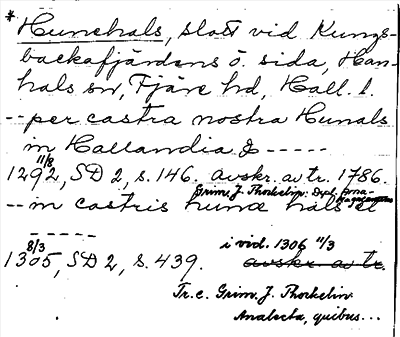 * Hunehals, slott vid Kungs-
backafjärdens ö. sida, Han-
hals sn, Fjäre hd, Hall. l.
-- per castra nostra Hunals
in Hallandia & -----
11/8
1292, SD 2, s. 146. avskr. av tr. 1786.
Grim. J. Thorkelin: Dipl. Arna-Magnæanum
-- in castris hunæ hals et
-----
8/3
1305, SD 2, s. 439. i vid. 1306 11/3
avskr. av tr.
Tr. e. Grim. J. Thorkelin
Analecta, quibus...